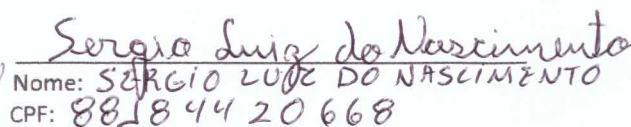 Sergio Luiz do Nascimento
Nome: SERGIO LUIZ DO NASCIMENTO
CPF: 88184420668